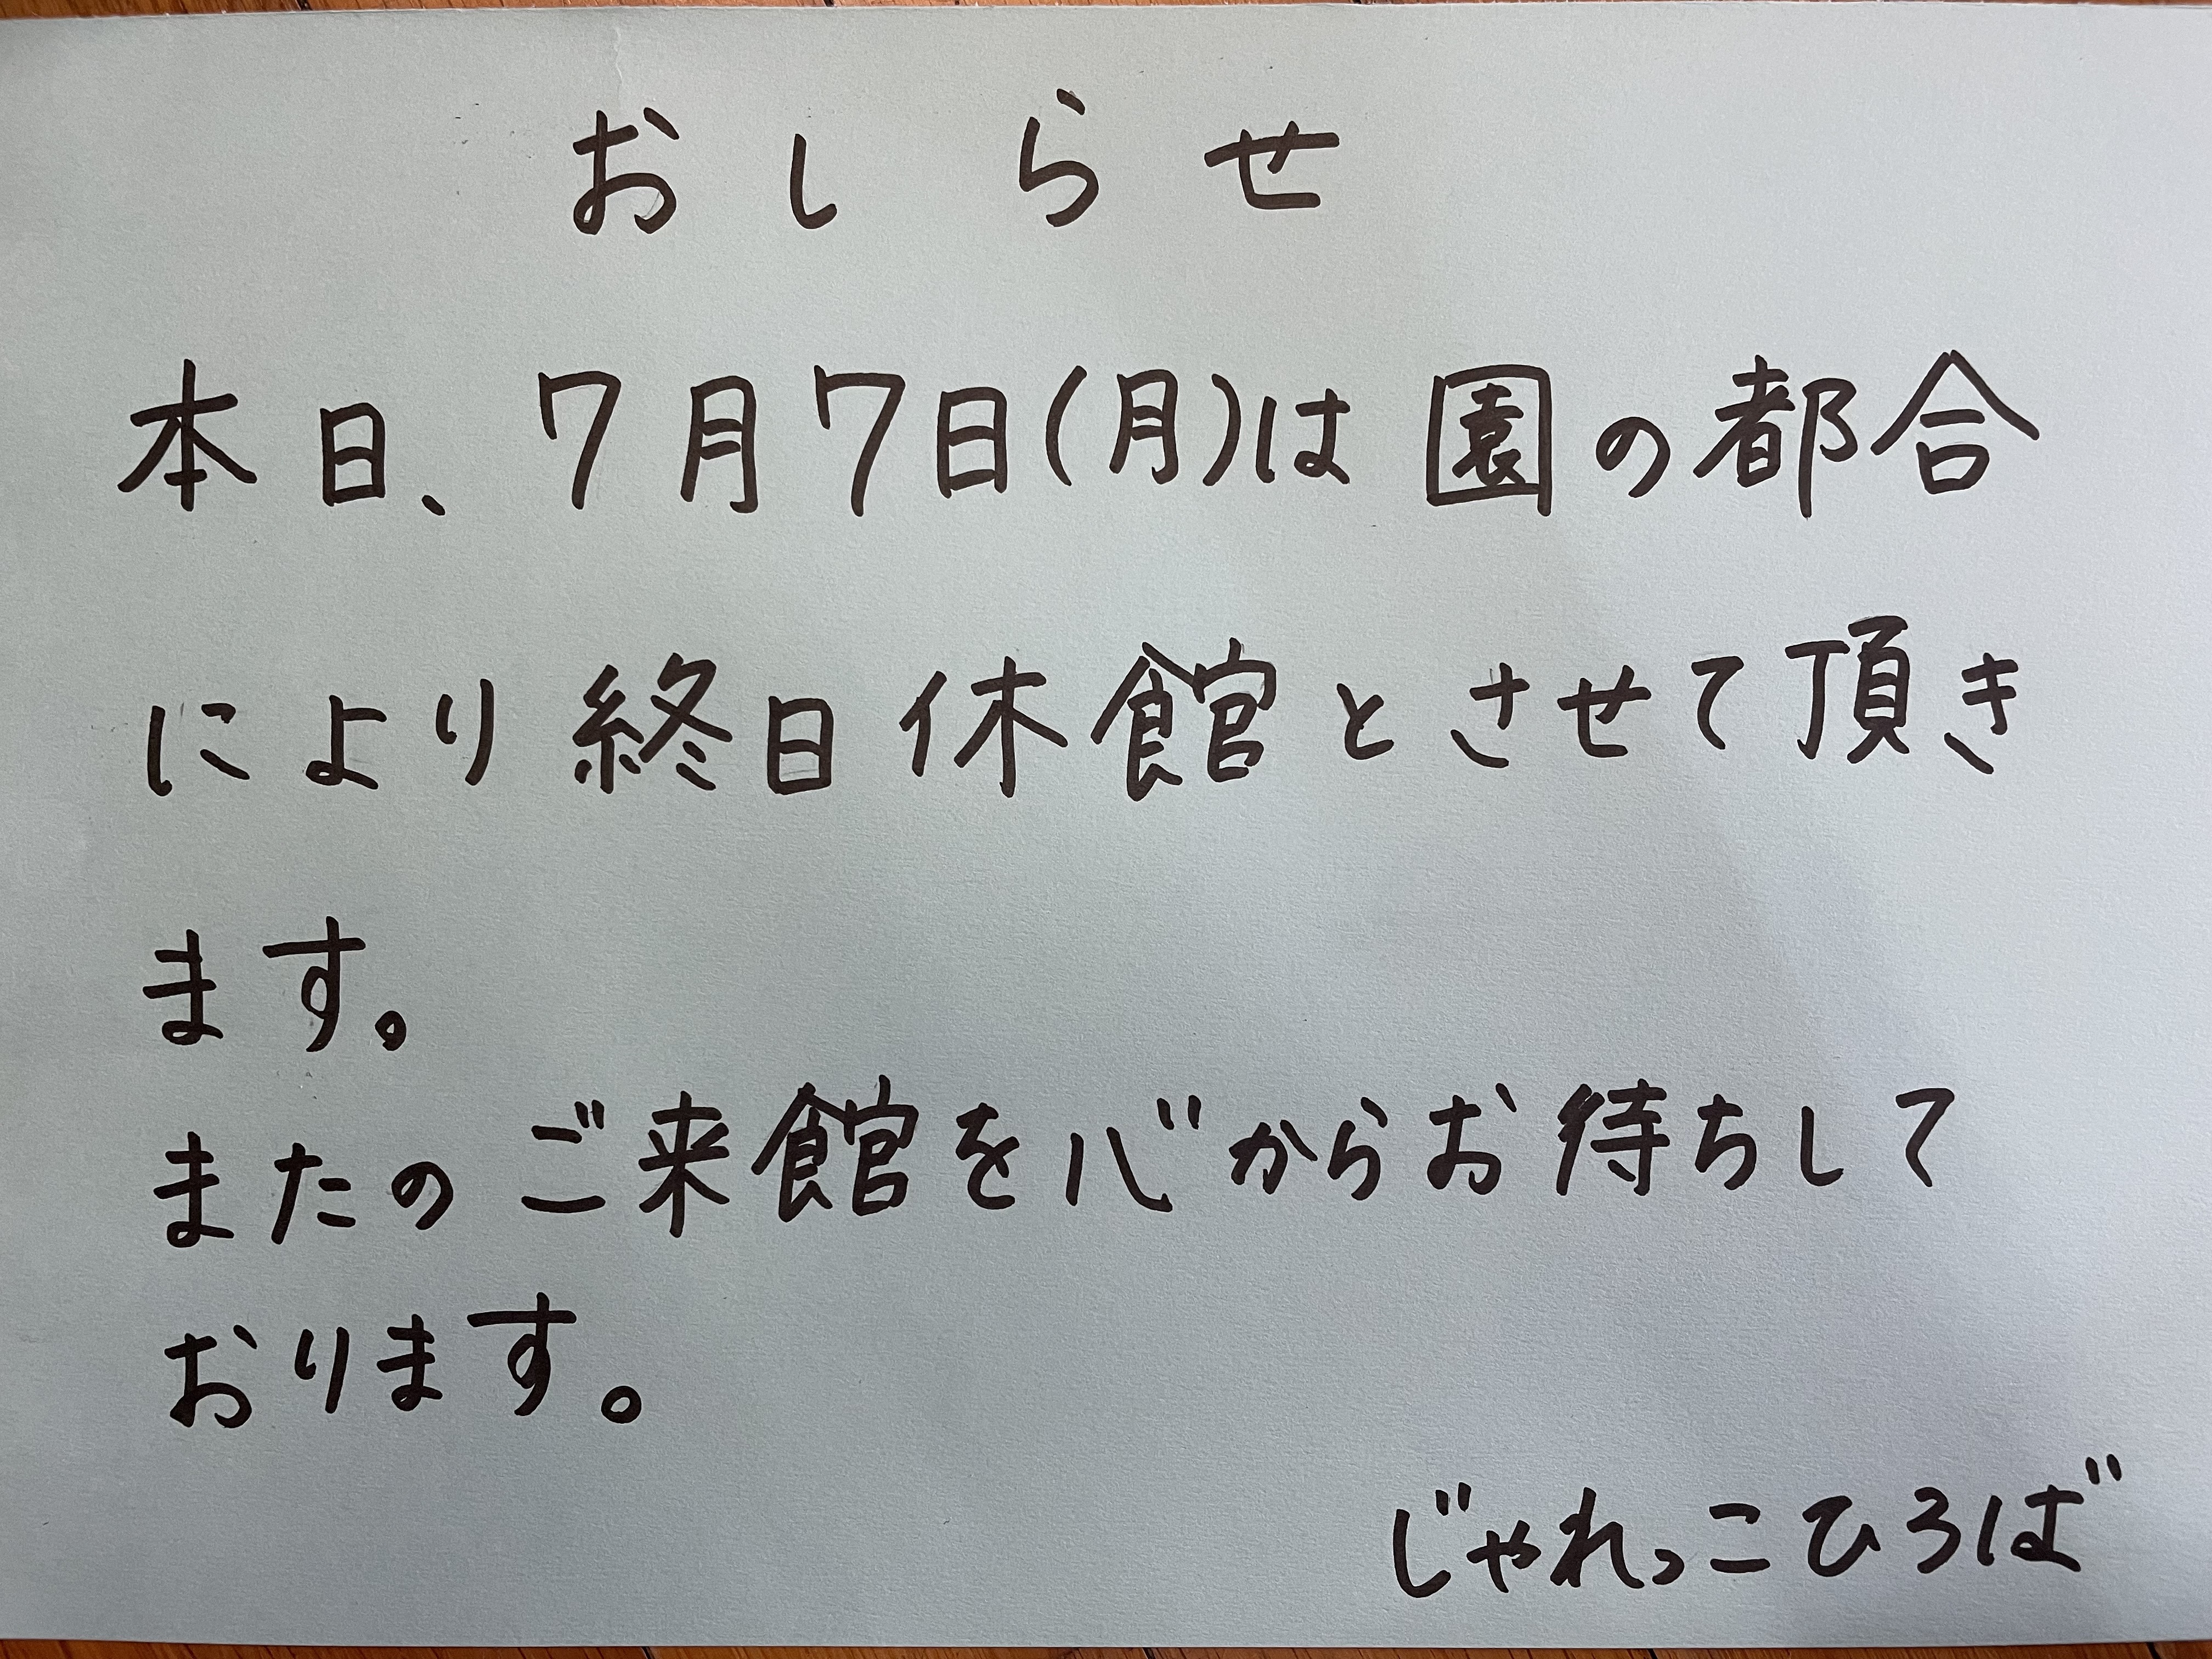 おしらせ
本日、7月7日(月)は園の都合
により終日休館とさせて頂き
ます。
またのご来館を心からお待ちして
おります。
じゃれっこひろば